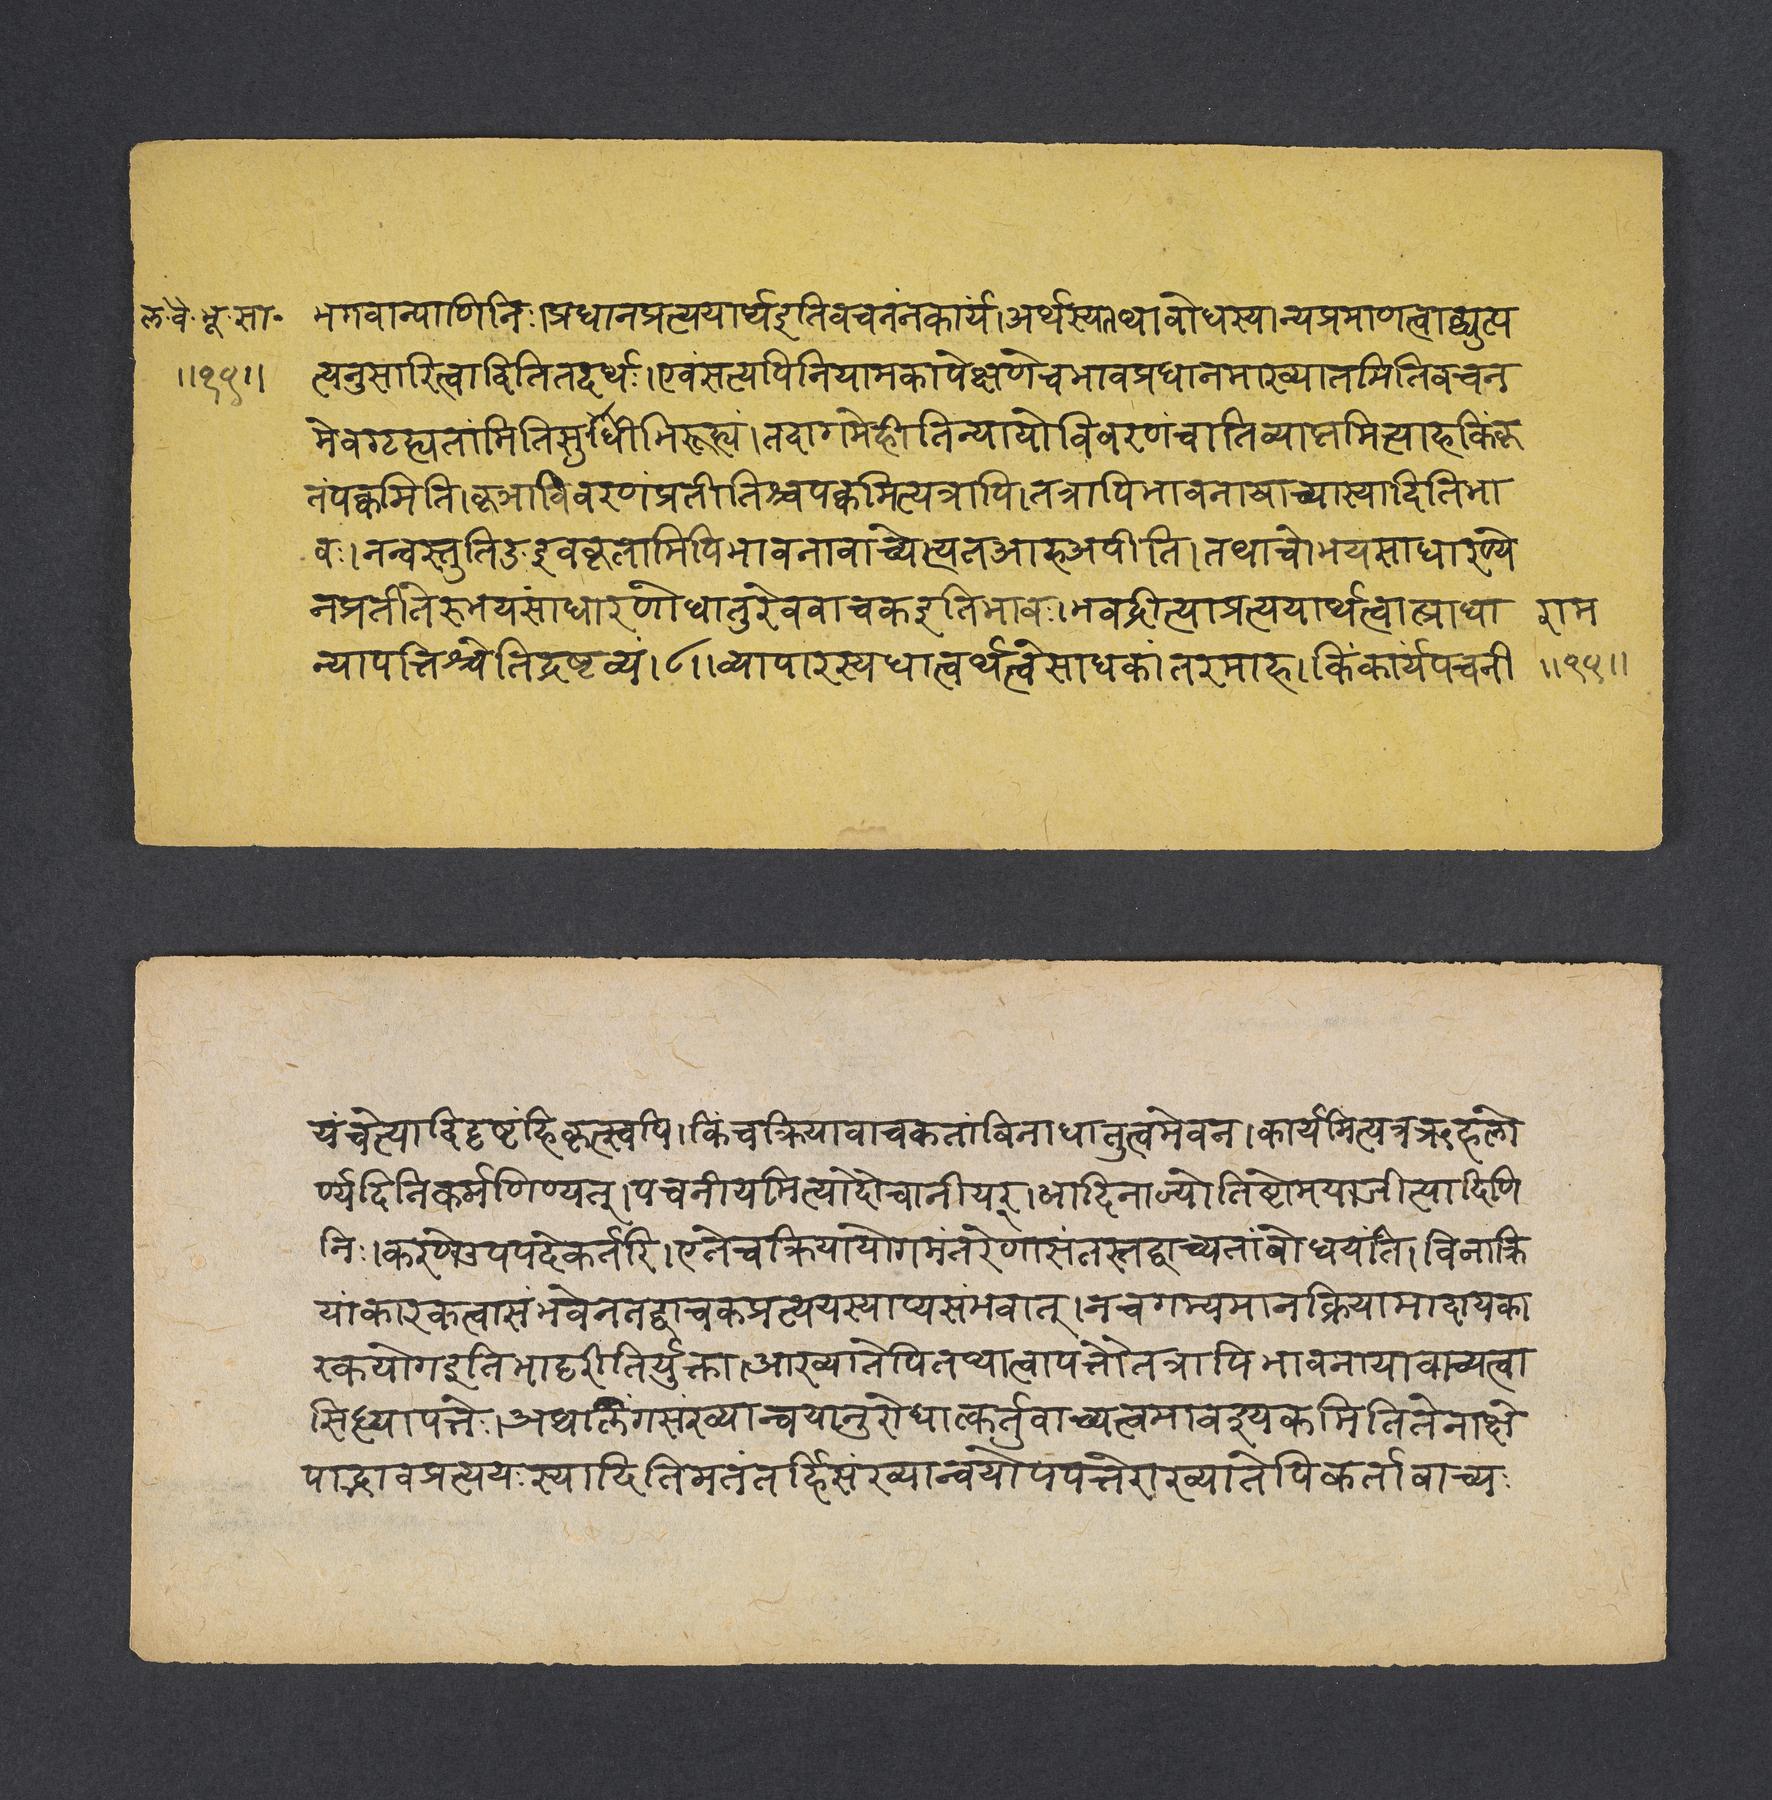 ल॰वै॰भू॰सा॰
॥१५॥
भगवान्पाणिनिः।प्रधानप्रत्ययार्थइतिवचनंनकार्यं।अर्थस्यतथाबोधस्यान्यप्रमाणत्वाद्व्युत्प
त्त्यनुसारित्वादितितदर्थः।एवंसत्यपिनियामकापेक्षणेचभावप्रधानमाख्यातमितिवचन
मेवगृह्यतांमितिसुधीभिरूह्यं।तदागमेहीतिन्यायोविवरणंचातिव्याप्तमित्याहकिंकृ
तंपक्वमिति।कृञाविवरणंप्रतीतिश्चपक्वमित्यत्रापि।तत्रापिभावनावाच्यास्यादितिभा
वः।नन्वस्तुतिङइवकृतामिपिभावनावाच्येत्यतआहअपीति।तथाचोभयसाधारण्ये
नप्रतीतेरुभयसाधारणोधातुरेववाचकइतिभावः।भवद्रीत्याप्रत्ययार्थत्वात्प्राधा
न्यापत्तिश्चेतिद्रष्टव्यं।८।।व्यापारस्यधात्वर्थत्वेसाधकांतरमाह।किंकार्यपचनी
राम
॥१५॥
यंचेत्यादिदृष्टंहिकृत्स्वपि।किंचक्रियावाचकतांविनाधातुत्वमेवन।कार्यमित्यत्रऋहलो
र्ण्यदितिकर्मणिण्यत्।पचनीयमित्यादोचानीयर्।आदिनाज्योतिष्टोमयाजीत्यादिणि
निः।करणेउपपदेकर्तरि।एतेचक्रियायोगमंतरेणासंतस्तद्वाच्यतांबोधयंति।विनाक्रि
यांकारकत्वासंभवेनतद्वाचकप्रत्ययस्याप्यसंभवात्।नचगम्यमानक्रियामादायका
रकयोगइतिभाट्टरीतिर्युक्ता।आख्यातेपितथात्वापत्तौतत्रापिभावनायावाच्यत्वा
सिद्ध्यापत्तेः।अथलिंगसंख्यान्वयानुरोधात्कर्तुवाच्यत्वमावश्यकमितितेनाक्षे
पाद्भावप्रत्ययःस्यादितिमतंतर्हिसंख्यान्वयोपपत्तेराख्यातेपिकर्तावाच्यः